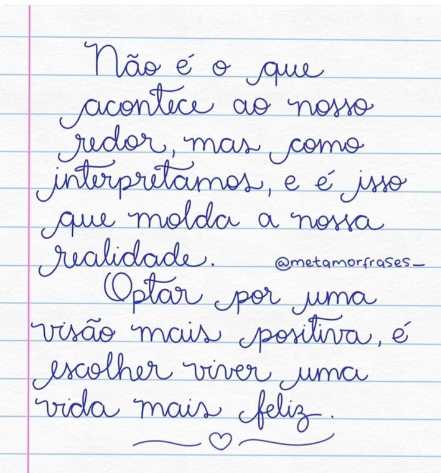 Não é o que
acontece ao nosso
redor, mas como
interpretamos, e é isso
que molda a nossa
realidade. @metamorfrases_
Optar por uma
visão mais positiva, é
escolher viver uma
vida mais feliz.